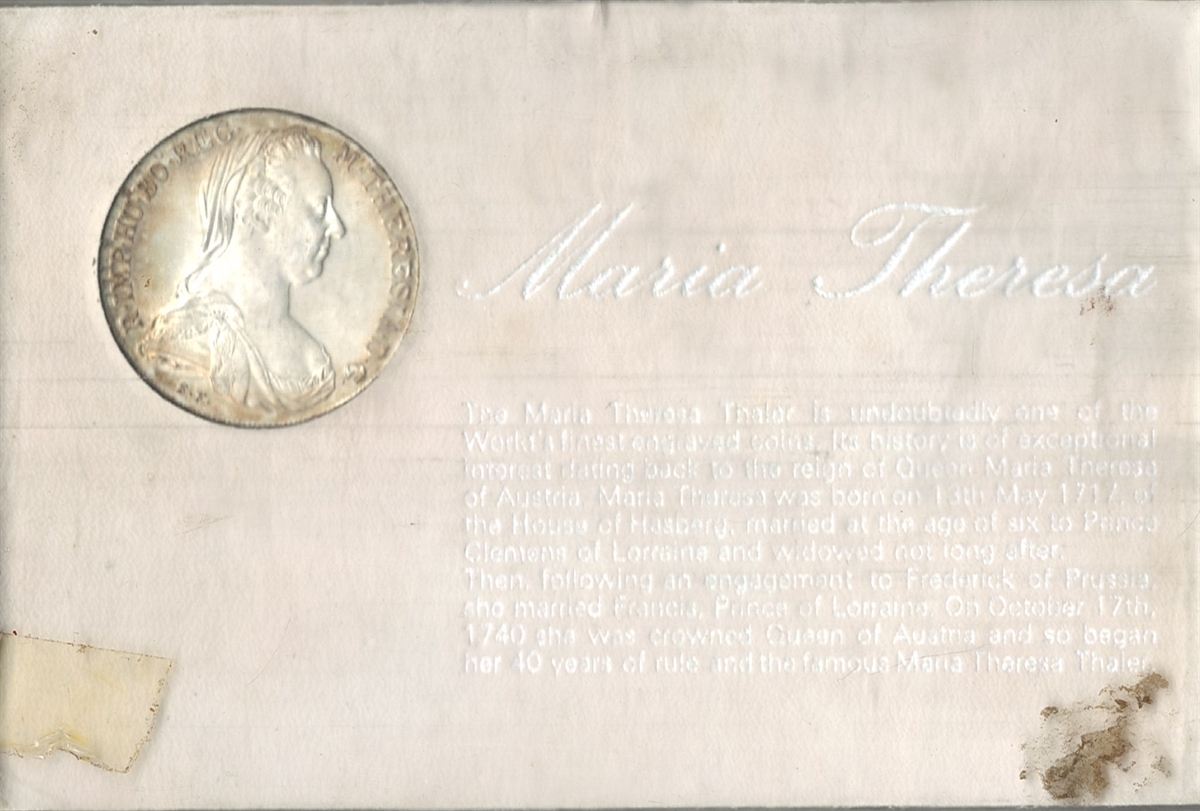 R·IMP·HU·BO·REG·
M·THERESIA·D·G·
S·F·
Maria Theresa
The Maria Theresa Thaler is undoubtedly one of the
World's finest engraved coins. Its history is of exceptional
interest dating back to the reign of Queen Maria Theresa
of Austria. Maria Theresa was born on 13th May 1717, of
the House of Hasberg, married at the age of six to Prince
Clemens of Lorraine and widowed not long after.
Then, following an engagement to Frederick of Prussia,
she married Francis, Prince of Lorraine. On October 17th,
1740 she was crowned Queen of Austria and so began
her 40 years of rule and the famous Maria Theresa Thaler.